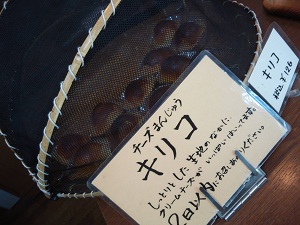 チーズまんじゅう
キリコ
しっとりとした生地のなかに、
クリームチーズがいっぱいはいってます。
2日以内にお召しあがりください
キリコ
税込¥126